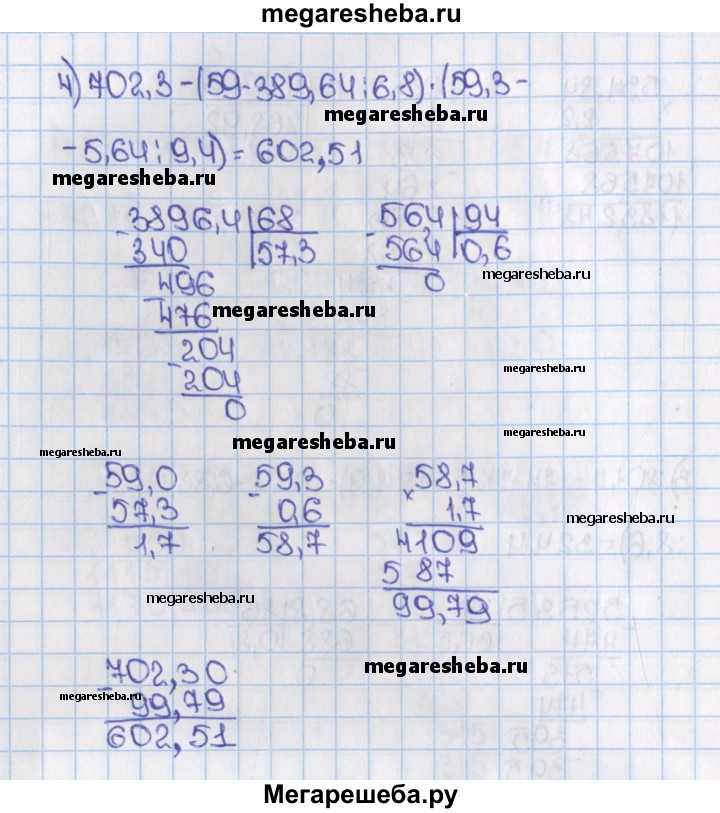 megaresheba.ru
4) 702,3-(59-389,64:6,8)·(59,3-
megaresheba.ru
-5,64:9,4)=602,51
megaresheba.ru
3896,4 68
- 340 57,3
496
- 476
204
- 204
0
56,4 94
- 564 0,6
0
megaresheba.ru
megaresheba.ru
megaresheba.ru
megaresheba.ru
megaresheba.ru
megaresheba.ru
59,0
- 57,3
1,7
59,3
- 0,6
58,7
58,7
× 1,7
4109
5 87
99,79
megaresheba.ru
megaresheba.ru
megaresheba.ru
702,30
- 99,79
602,51
megaresheba.ru
Мегарешеба.ру